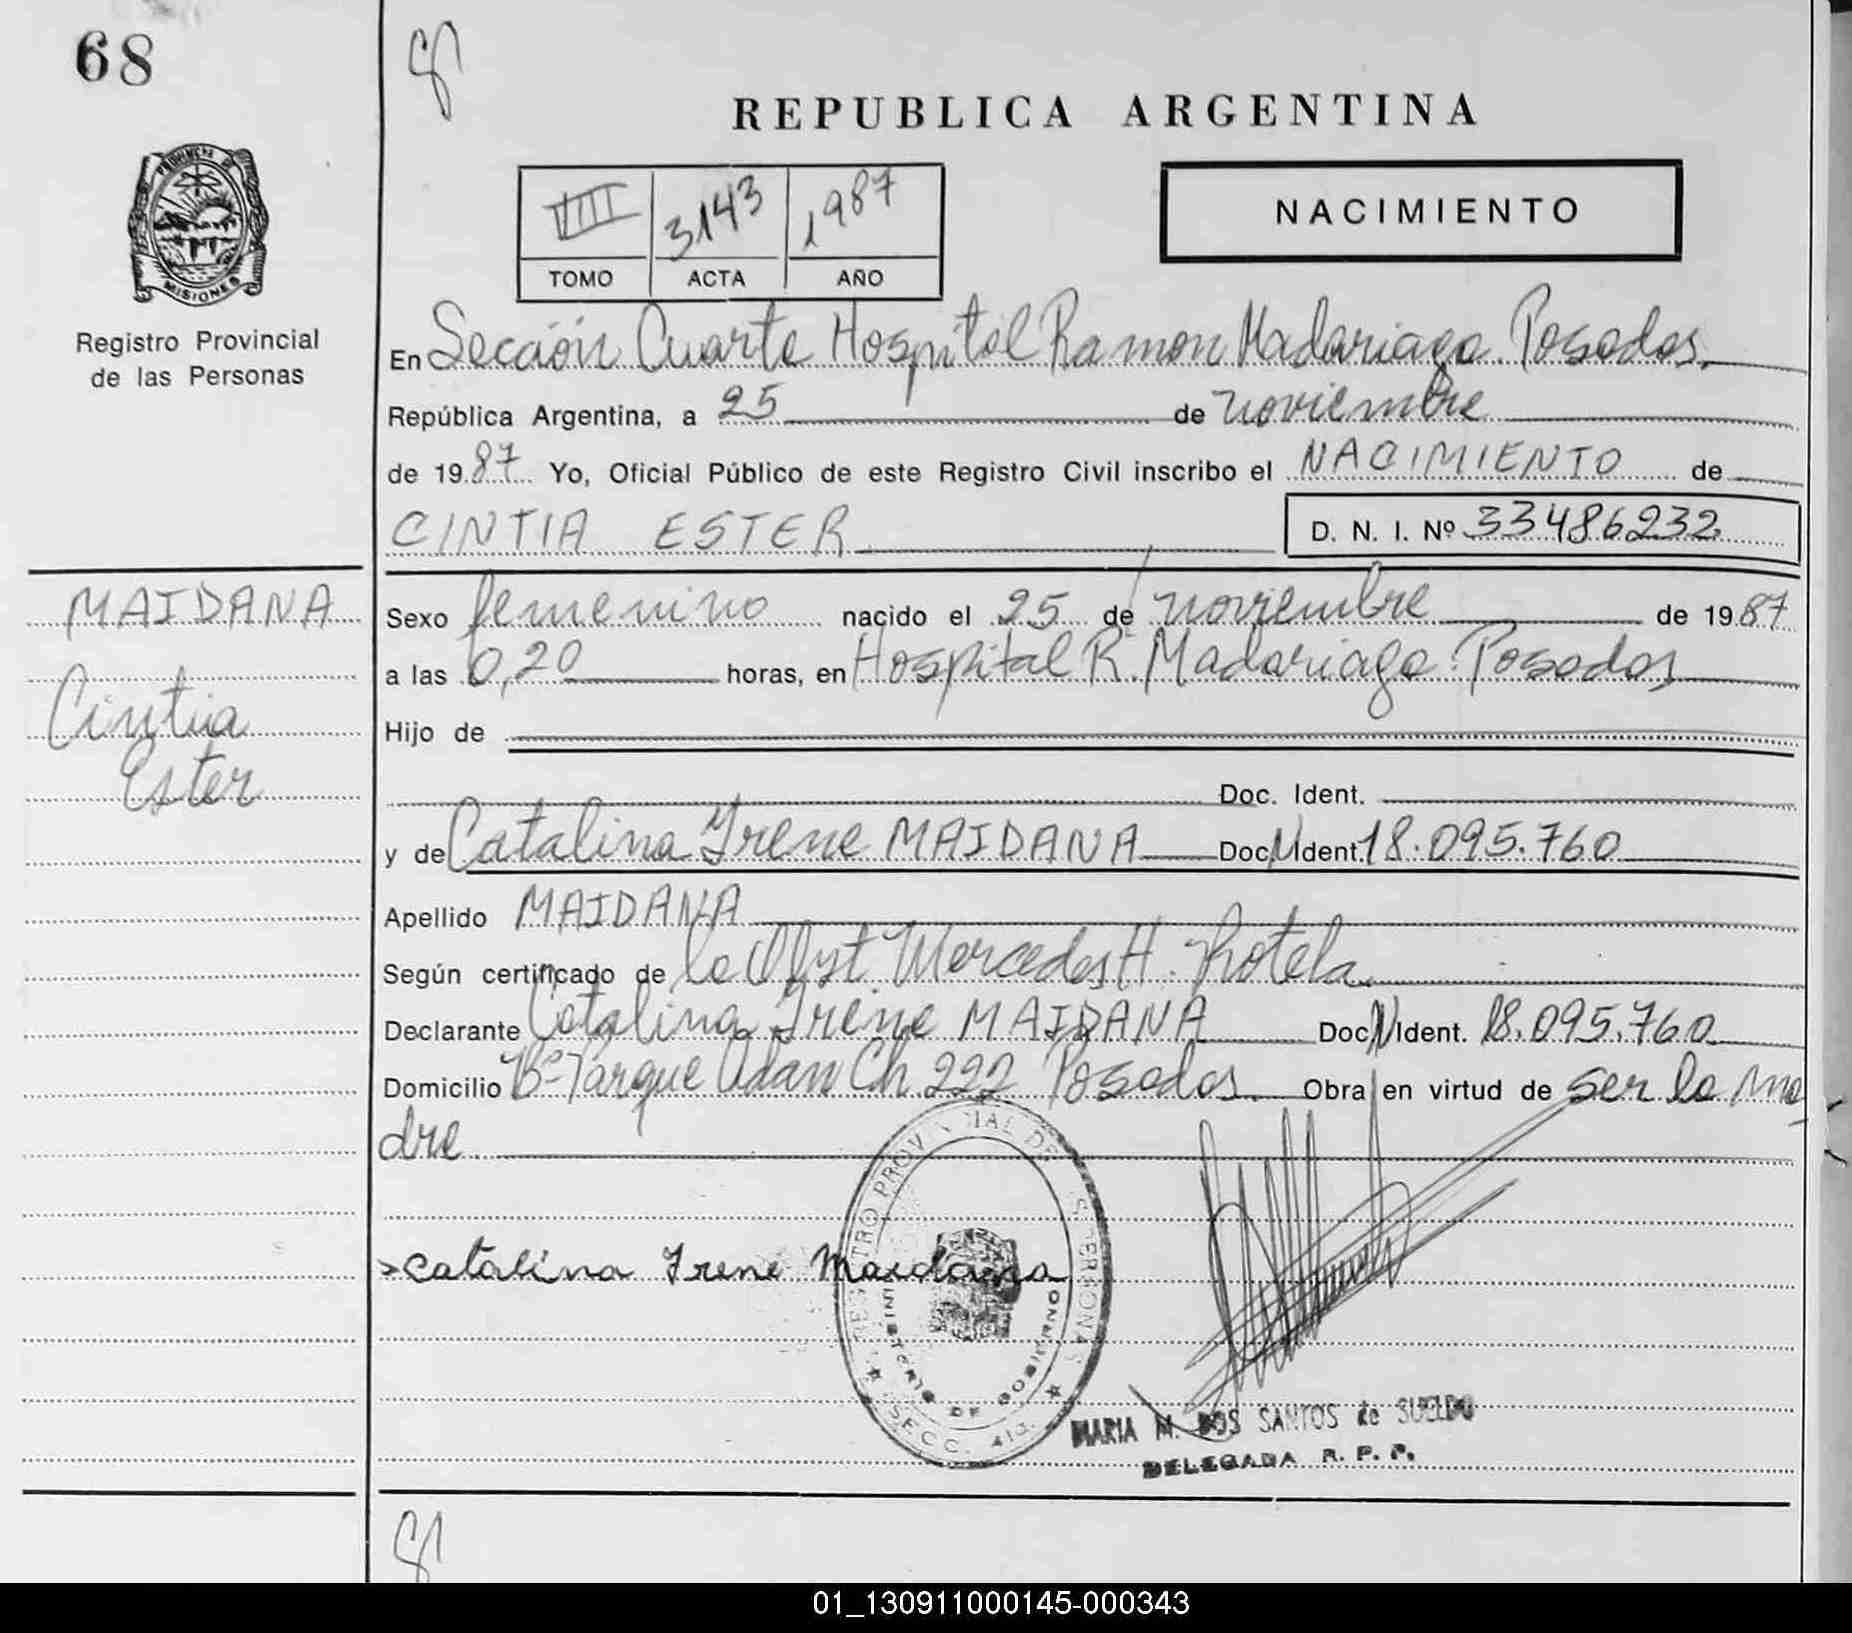 68
REPUBLICA ARGENTINA
PROVINCIA DE
MISIONES
Registro Provincial
de las Personas
VIII 3143 1987
TOMO ACTA AÑO
NACIMIENTO
En Sección Cuarta Hospital Ramon Madariaga Posadas
República Argentina, a 25 de noviembre
de 1987 Yo, Oficial Público de este Registro Civil inscribo el NACIMIENTO de
CINTIA ESTER D. N. I. Nº 33486232
MAIDANA
Cintia
Ester
Sexo femenino nacido el 25 de noviembre de 1987
a las 0,20 horas, en Hospital R. Madariaga Posadas
Hijo de
Doc. Ident.
y de Catalina Irene MAIDANA Doc N Ident. 18.095.760
Apellido MAIDANA
Según certificado de la Obst. Mercedes H. Rotela
Declarante Catalina Irene MAIDANA Doc N Ident. 18.095.760
Domicilio Bº Parque Adam Ch 222 Posadas Obra en virtud de ser la ma
dre
Catalina Irene Maidana
MINISTERIO DE GOBIERNO
SECC. 4ta.
MARIA M. DOS SANTOS de SUELDO
DELEGADA R. P. P.
01_130911000145-000343